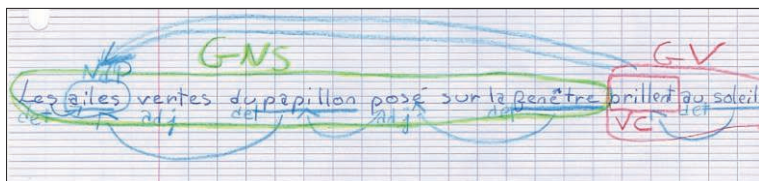 GNS GV
NP
Les ailes ventes du papillon posé sur la fenêtre brillent au soleil
det adj det adj det VC det